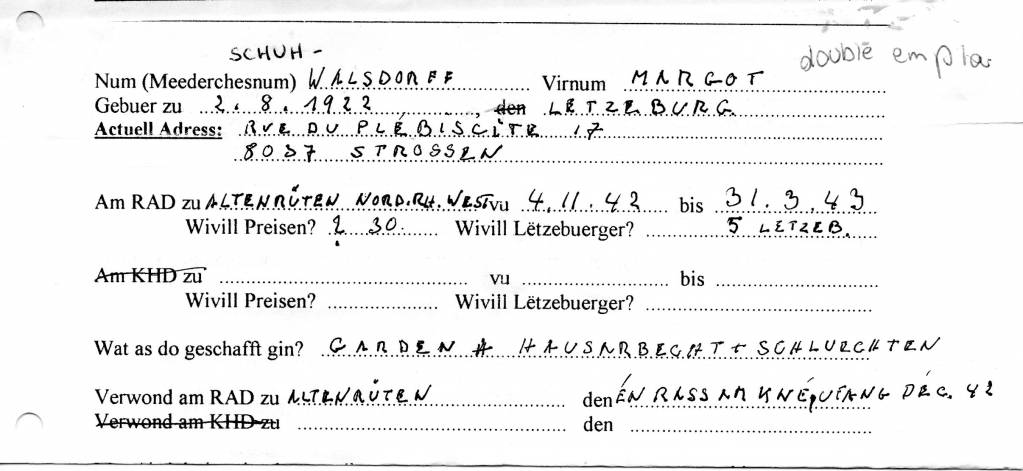 SCHUH - double emploi
Num (Meederchesnum) WALSDORFF Virnum MARGOT
Gebuer zu 2.8.1922, den LETZEBURG
Actuell Adress: RUE DU PLÉBISCITE 17
8037 STROSSEN
Am RAD zu ALTENRÜTEN NORD.RH.WEST vu 4.11.42 bis 31.3.43
Wivill Preisen? ? 30. Wivill Lëtzebuerger? 5 LETZEB.
Am KHD zu vu bis
Wivill Preisen? Wivill Lëtzebuerger?
Wat as do geschafft gin? GARDEN HAUSARBECHT + SCHLUECHTEN
Verwond am RAD zu ALTENRÜTEN den EN RASS AM KNÉ, UFANG DÉC. 42
Verwond am KHD zu den